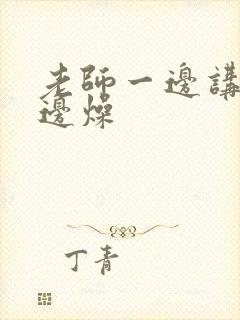 老師一邊講
邊燥
丁青